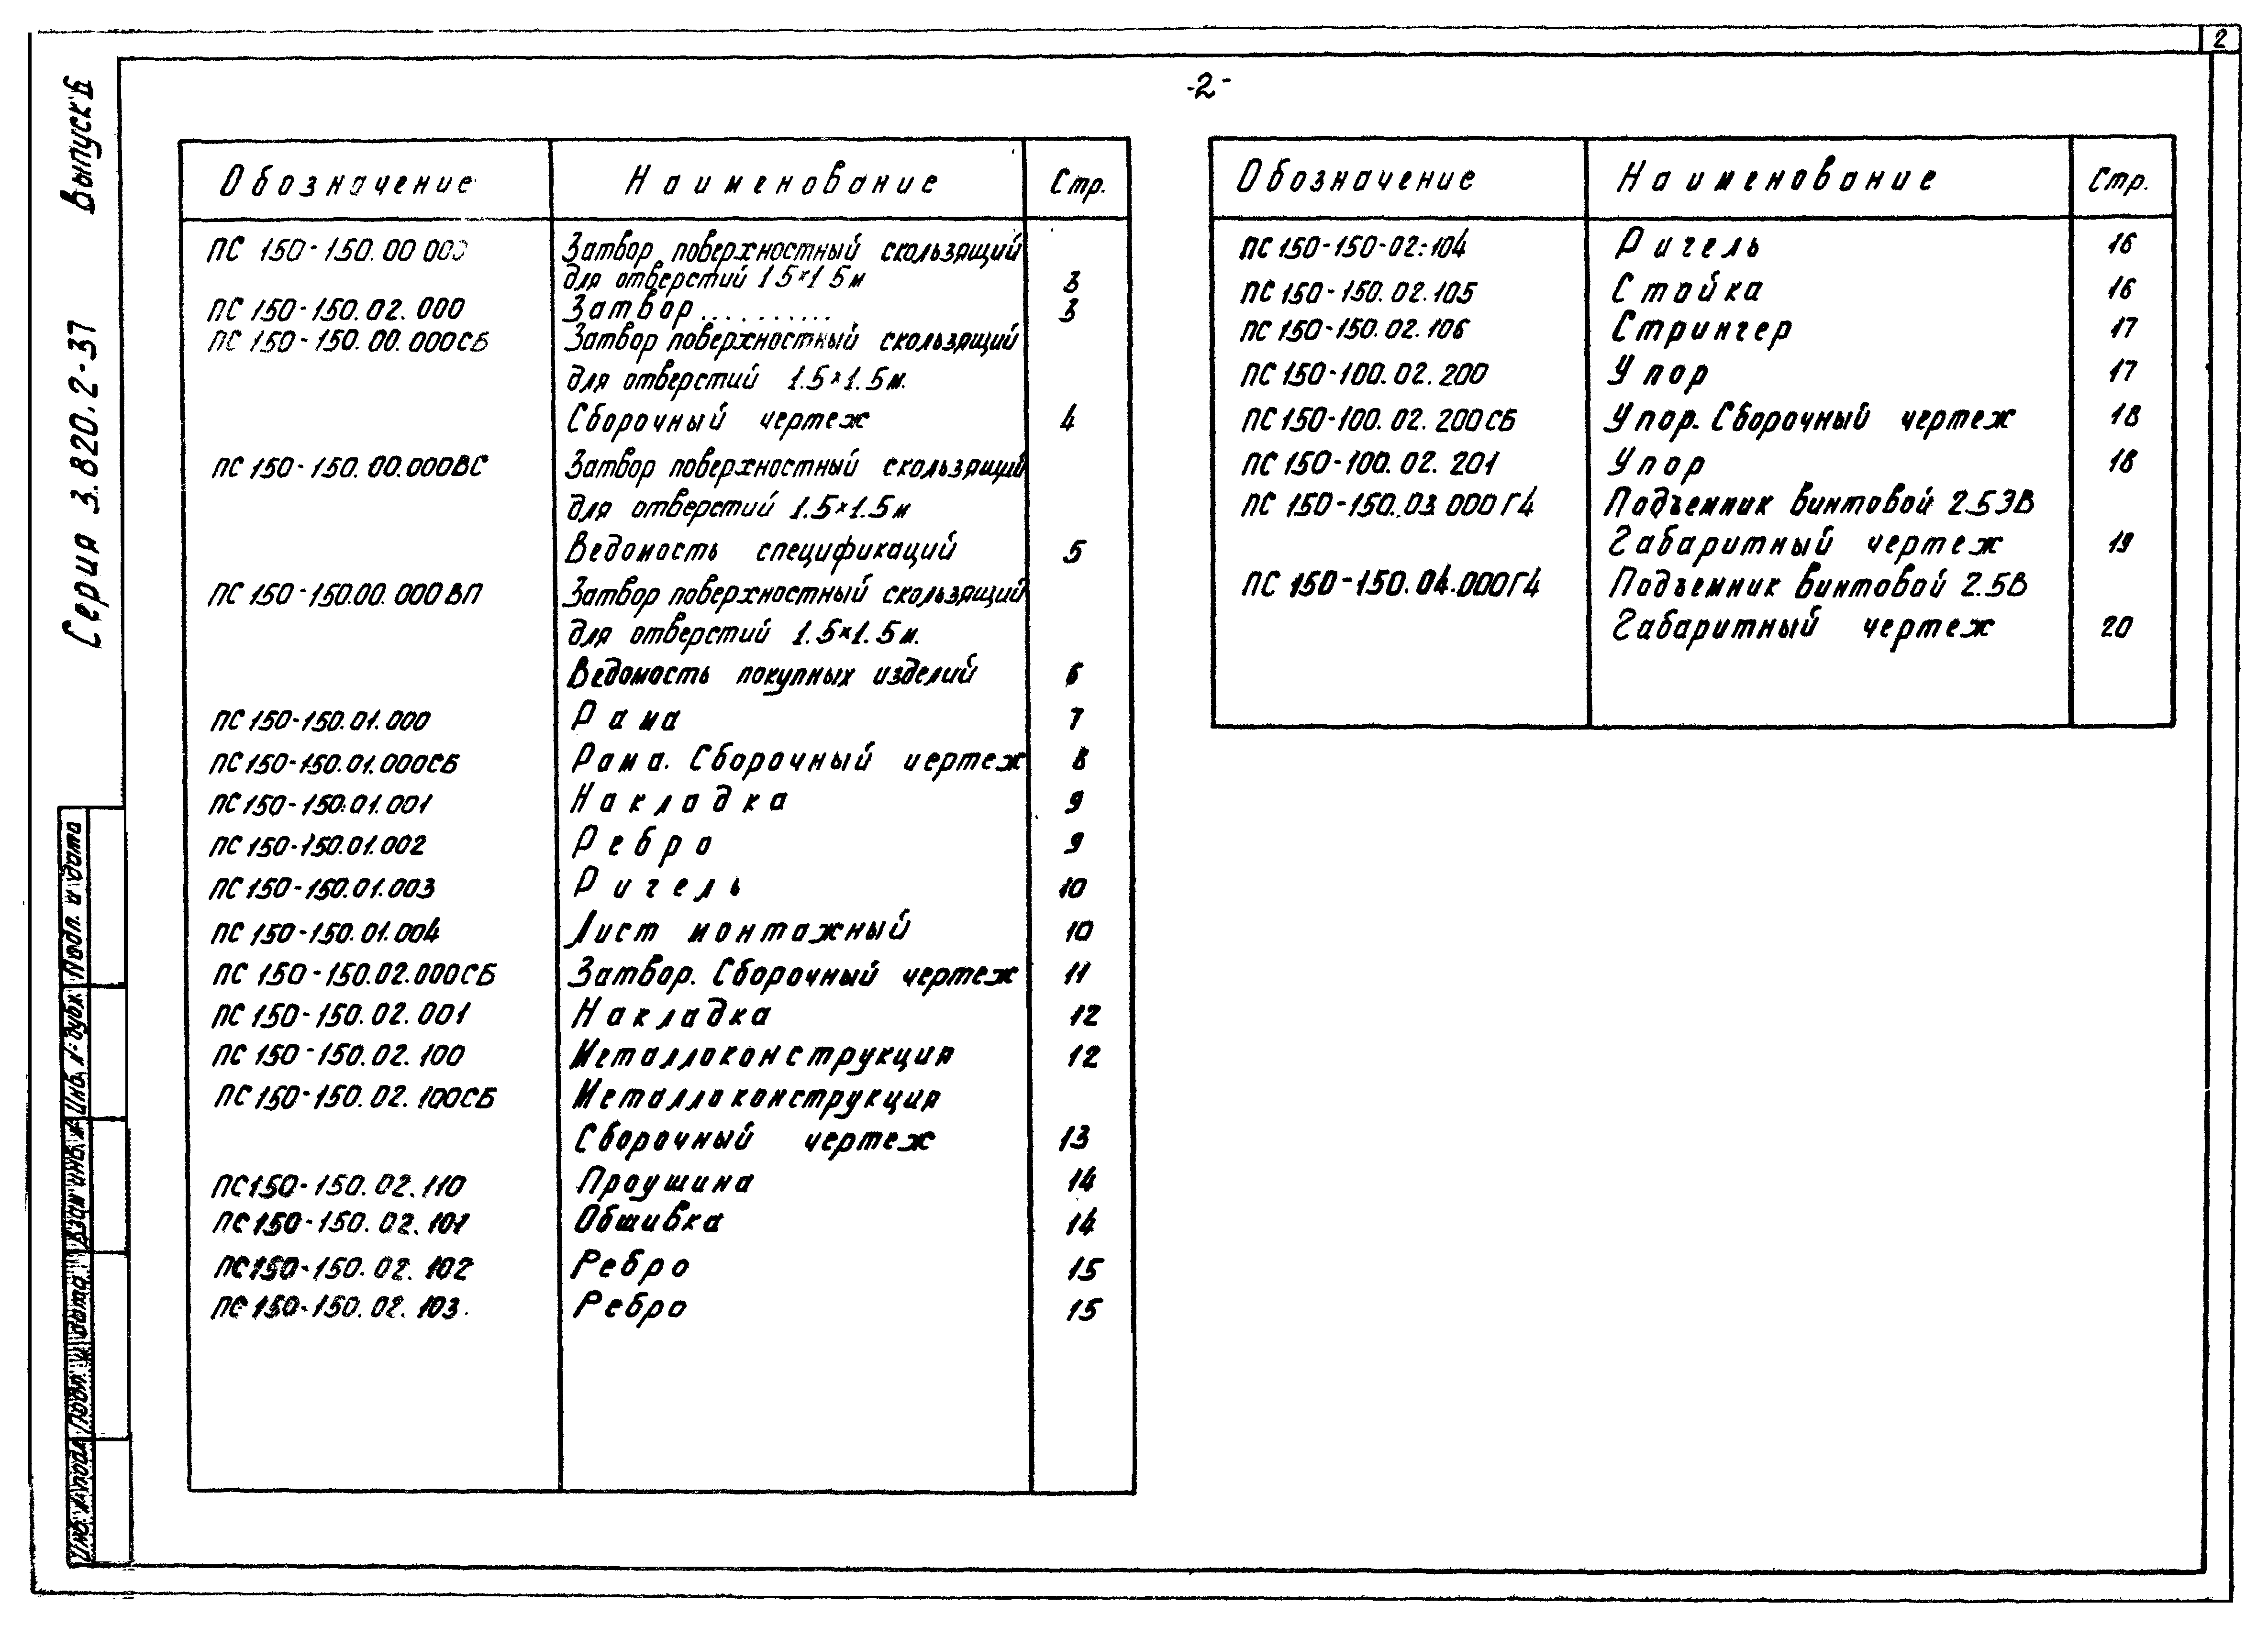 2
-2-
Выпуск 6
Серия 3.820.2-37
Обозначение Наименование Стр.
ПС 150-150.00 000 Затвор поверхностный скользящий
для отверстий 1 5×1 5м 3
ПС 150-150.02.000 Затвор.......... 3
ПС 150-150.00.000СБ Затвор поверхностный скользящий
для отверстий 1.5×1.5м.
Сборочный чертеж 4
ПС 150-150.00.000ВС Затвор поверхностный скользящий
для отверстий 1.5×1.5м
Ведомость спецификаций 5
ПС 150-150.00.000ВП Затвор поверхностный скользящий
для отверстий 1.5×1.5м.
Ведомость покупных изделий 6
ПС 150-150.01.000 Рама 7
ПС 150-150.01.000СБ Рама. Сборочный чертеж 8
ПС 150-150.01.001 Накладка 9
ПС 150-150.01.002 Ребро 9
ПС 150-150.01.003 Ригель 10
ПС 150-150.01.004 Лист монтажный 10
ПС 150-150.02.000СБ Затвор. Сборочный чертеж 11
ПС 150-150.02.001 Накладка 12
ПС 150-150.02.100 Металлоконструкция 12
ПС 150-150.02.100СБ Металлоконструкция
Сборочный чертеж 13
ПС150-150.02.110 Проушина 14
ПС150-150.02.101 Обшивка 14
ПС150-150.02.102 Ребро 15
ПС 150-150.02.103. Ребро 15
Обозначение Наименование Стр.
ПС 150-150-02.104 Ригель 16
ПС 150-150.02.105 Стойка 16
ПС 150-150.02.106 Стрингер 17
ПС 150-100.02.200 Упор 17
ПС 150-100.02.200СБ Упор. Сборочный чертеж 18
ПС 150-100.02.201 Упор 18
ПС 150-150.03.000Г4 Подъемник винтовой 2.5ЭВ
Габаритный чертеж 19
ПС 150-150.04.000Г4 Подъемник винтовой 2.5В
Габаритный чертеж 20
Подп. и дата
Инв. № дубл.
Взам инв. №
Подп. и дата
Инв. № подл